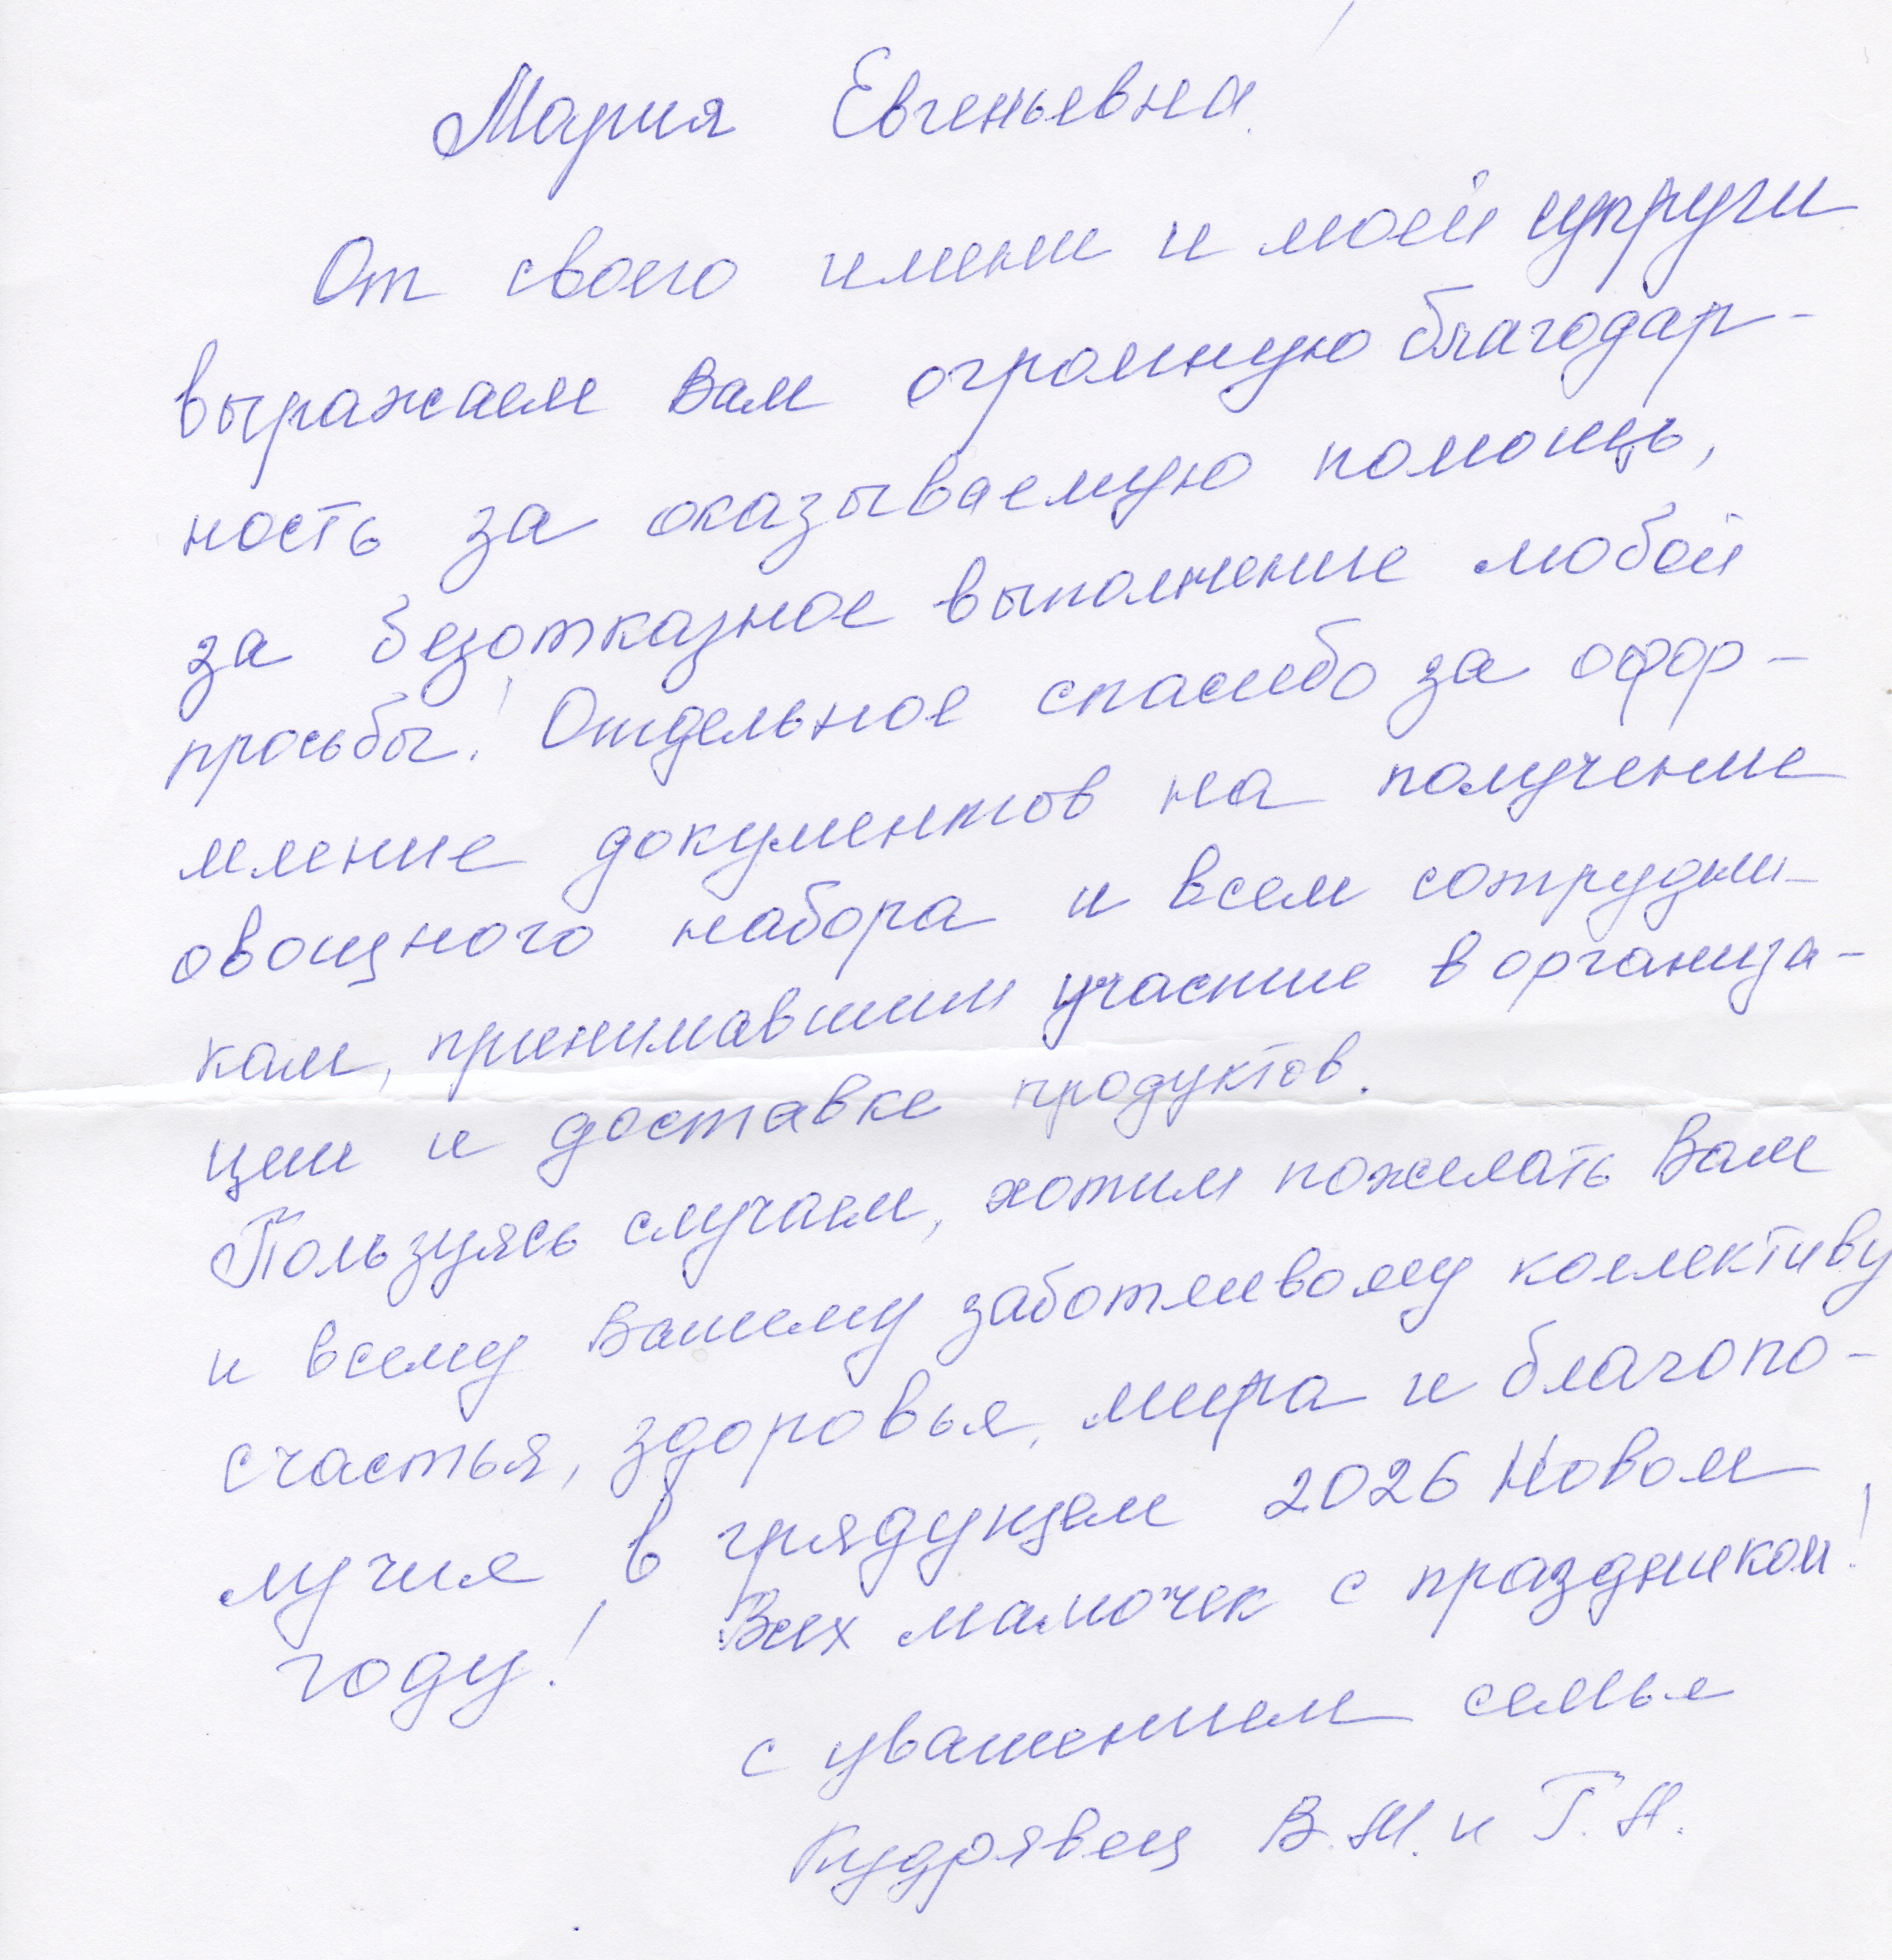 Мария Евгеньевна!
От своего имени и моей супруги
выражаем Вам огромную благодар-
ность за оказываемую помощь,
за безотказное выполнение любой
просьбы! Отдельное спасибо за офор-
мление документов на получение
овощного набора и всем сотрудни-
кам, принимавшим участие в организа-
ции и доставке продуктов.
Пользуясь случаем, хотим пожелать Вам
и всему Вашему заботливому коллективу
счастья, здоровья, мира и благопо-
лучия в грядущем 2026 Новом
году! Всех мамочек с праздником!
с уважением семья
Кудрявец В.М. и Г.Н.